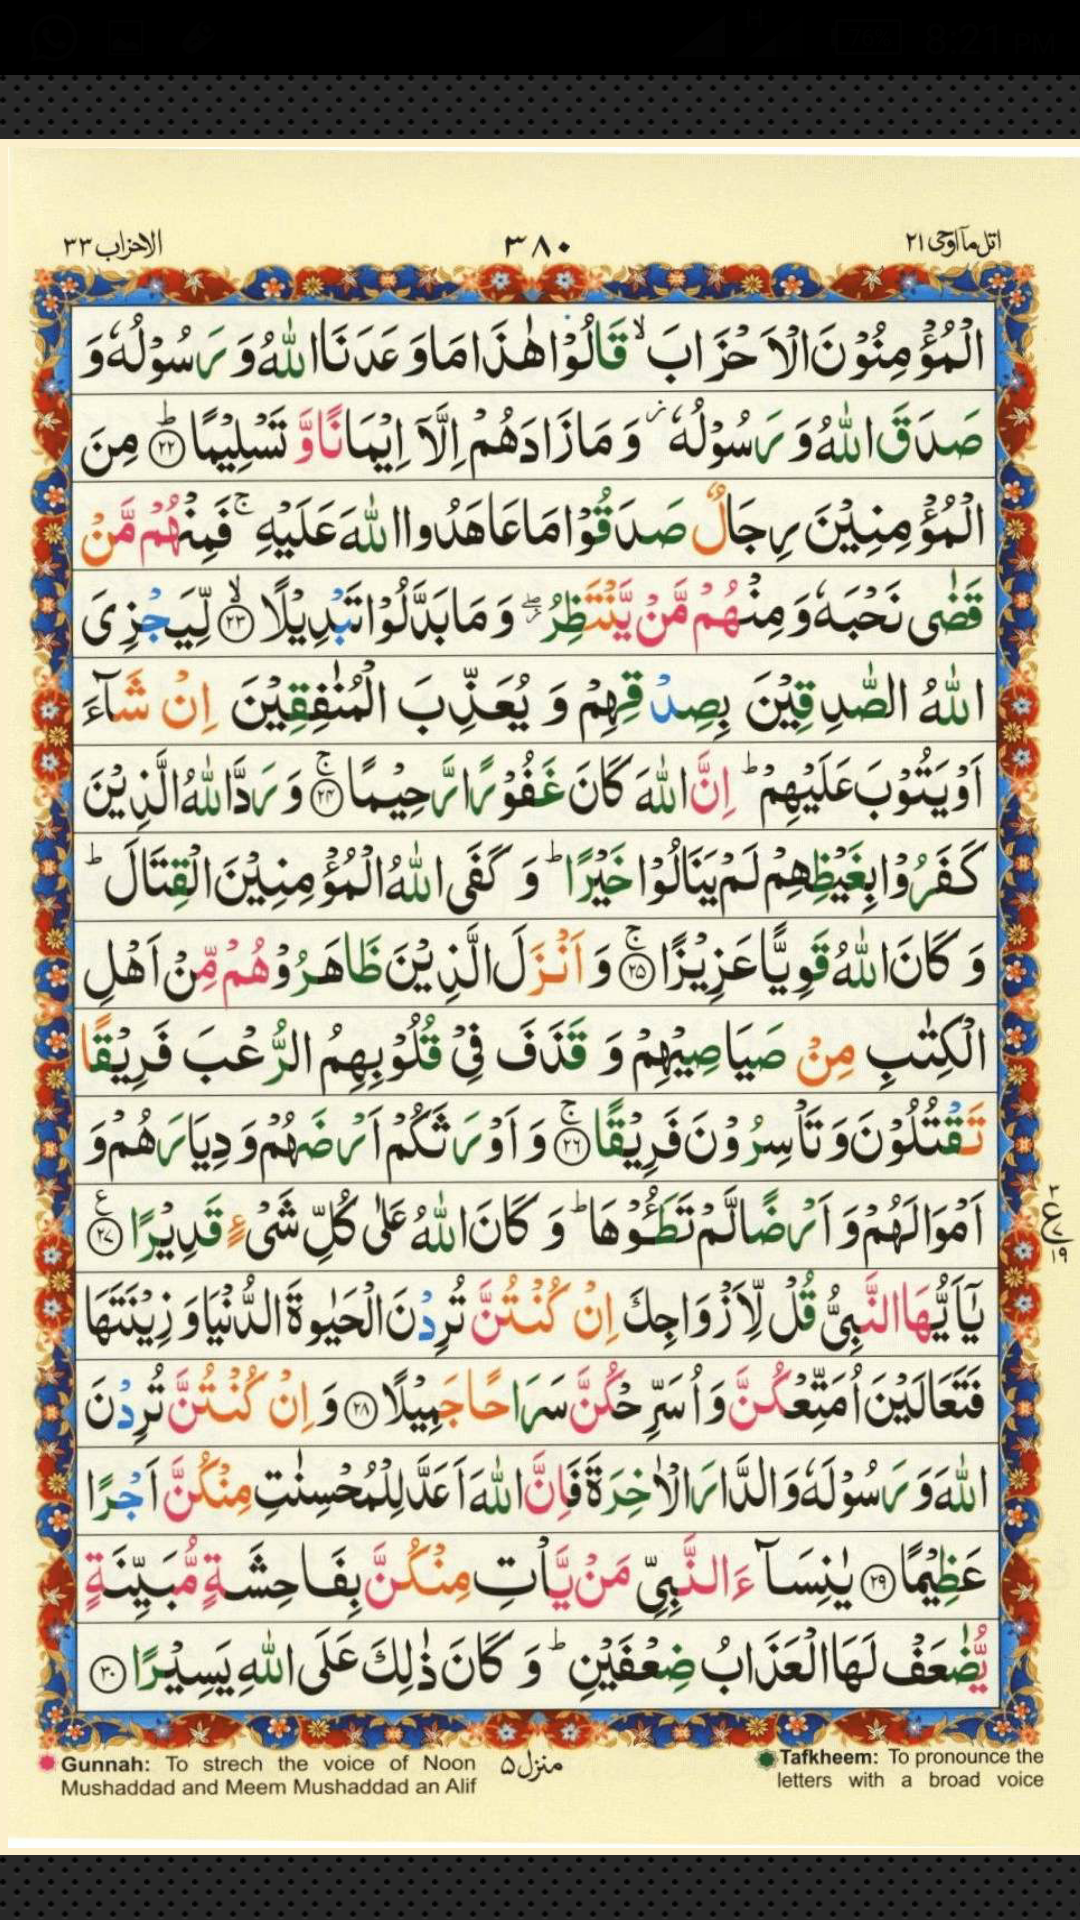 8:21 PM
اتل مآ اوحی ٢١
٣٨٠
الاحزاب ٣٣
الْمُؤْمِنُوْنَ الْاَحْزَابَ ۙ قَالُوْا هٰذَا مَا وَعَدَنَا اللّٰهُ وَ رَسُوْلُهٗ وَ
صَدَقَ اللّٰهُ وَ رَسُوْلُهٗ ؗ وَ مَا زَادَهُمْ اِلَّاۤ اِیْمَانًا وَّ تَسْلِیْمًا ؕ﴿٢٢﴾ مِنَ
الْمُؤْمِنِیْنَ رِجَالٌ صَدَقُوْا مَا عَاهَدُوا اللّٰهَ عَلَیْهِ ۚ فَمِنْهُمْ مَّنْ
قَضٰی نَحْبَهٗ وَ مِنْهُمْ مَّنْ یَّنْتَظِرُ ۖؗ وَ مَا بَدَّلُوْا تَبْدِیْلًا ۙ﴿٢٣﴾ لِّیَجْزِیَ
اللّٰهُ الصّٰدِقِیْنَ بِصِدْقِهِمْ وَ یُعَذِّبَ الْمُنٰفِقِیْنَ اِنْ شَآءَ
اَوْ یَتُوْبَ عَلَیْهِمْ ؕ اِنَّ اللّٰهَ كَانَ غَفُوْرًا رَّحِیْمًا ۚ﴿٢٤﴾ وَ رَدَّ اللّٰهُ الَّذِیْنَ
كَفَرُوْا بِغَیْظِهِمْ لَمْ یَنَالُوْا خَیْرًا ؕ وَ كَفَی اللّٰهُ الْمُؤْمِنِیْنَ الْقِتَالَ ؕ
وَ كَانَ اللّٰهُ قَوِیًّا عَزِیْزًا ۚ﴿٢٥﴾ وَ اَنْزَلَ الَّذِیْنَ ظَاهَرُوْهُمْ مِّنْ اَهْلِ
الْكِتٰبِ مِنْ صَیَاصِیْهِمْ وَ قَذَفَ فِیْ قُلُوْبِهِمُ الرُّعْبَ فَرِیْقًا
تَقْتُلُوْنَ وَ تَاْسِرُوْنَ فَرِیْقًا ۚ﴿٢٦﴾ وَ اَوْرَثَكُمْ اَرْضَهُمْ وَ دِیَارَهُمْ وَ
اَمْوَالَهُمْ وَ اَرْضًا لَّمْ تَطَـُٔوْهَا ؕ وَ كَانَ اللّٰهُ عَلٰی كُلِّ شَیْءٍ قَدِیْرًا ﴿٢٧﴾ ع
٣
ع
٧
١٩
یٰۤاَیُّهَا النَّبِیُّ قُلْ لِّاَزْوَاجِكَ اِنْ كُنْتُنَّ تُرِدْنَ الْحَیٰوةَ الدُّنْیَا وَ زِیْنَتَهَا
فَتَعَالَیْنَ اُمَتِّعْكُنَّ وَ اُسَرِّحْكُنَّ سَرَاحًا جَمِیْلًا ﴿٢٨﴾ وَ اِنْ كُنْتُنَّ تُرِدْنَ
اللّٰهَ وَ رَسُوْلَهٗ وَ الدَّارَ الْاٰخِرَةَ فَاِنَّ اللّٰهَ اَعَدَّ لِلْمُحْسِنٰتِ مِنْكُنَّ اَجْرًا
عَظِیْمًا ﴿٢٩﴾ یٰنِسَآءَ النَّبِیِّ مَنْ یَّاْتِ مِنْكُنَّ بِفَاحِشَةٍ مُّبَیِّنَةٍ
یُّضٰعَفْ لَهَا الْعَذَابُ ضِعْفَیْنِ ؕ وَ كَانَ ذٰلِكَ عَلَی اللّٰهِ یَسِیْرًا ﴿٣٠﴾
Gunnah: To strech the voice of Noon
Mushaddad and Meem Mushaddad an Alif
منزل ٥
Tafkheem: To pronounce the
letters with a broad voice